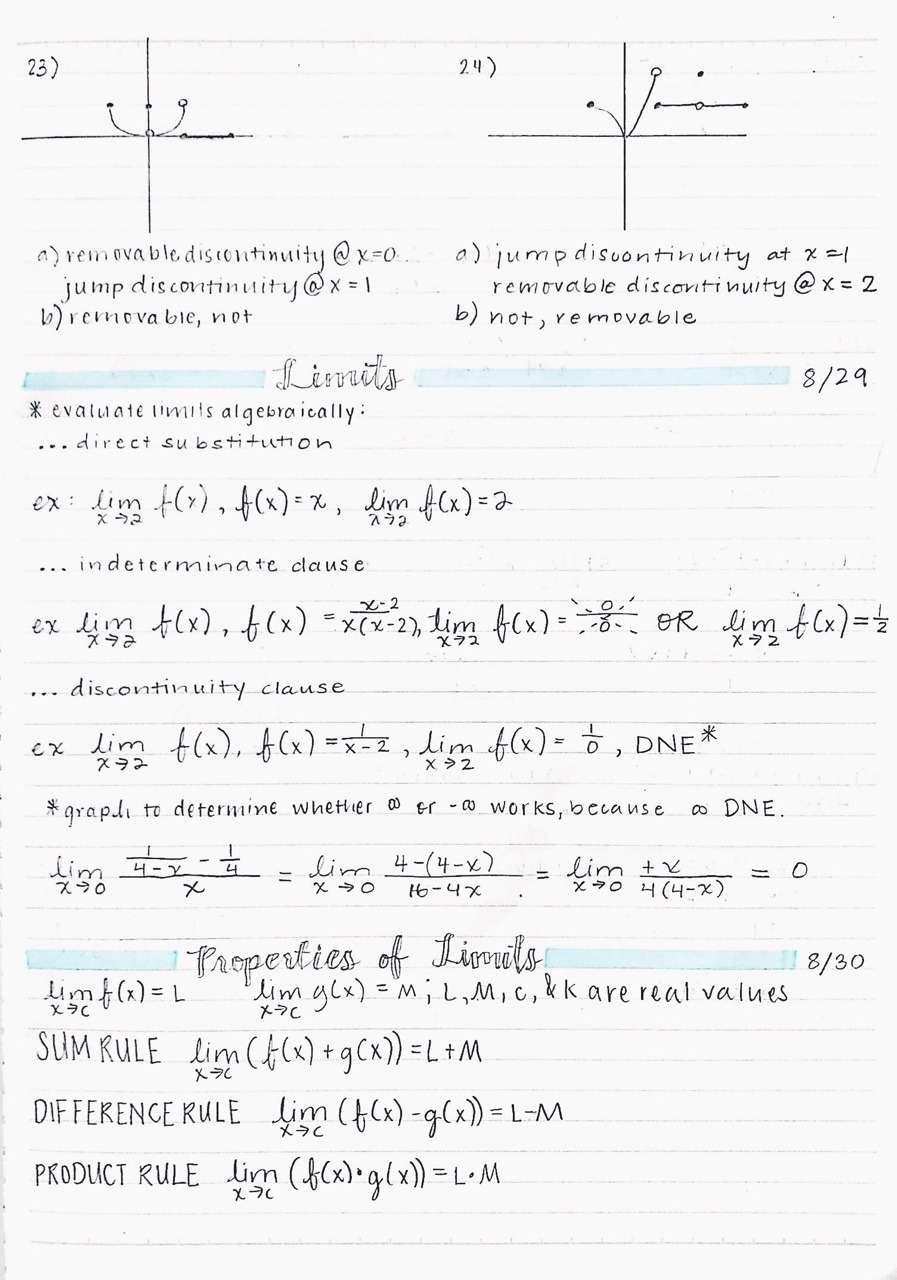 23)
24)
a) removable discontinuity @ x=0
jump discontinuity @ x = 1
b) removable, not
a) jump discontinuity at x =1
removable discontinuity @ x = 2
b) not, removable
Limits 8/29
* evaluate limits algebraically:
... direct substitution
ex: lim x→2 f(x), f(x) = x, lim x→2 f(x) = 2
... indeterminate clause
ex lim x→2 f(x), f(x) = x-2/x(x-2), lim x→2 f(x) = 0/0 OR lim x→2 f(x) = 1/2
... discontinuity clause
ex lim x→2 f(x), f(x) = 1/x-2, lim x→2 f(x) = 1/0, DNE*
*graph to determine whether ∞ or -∞ works, because ∞ DNE.
lim x→0 1/4-x - 1/4 / x = lim x→0 4-(4-x)/16-4x = lim x→0 +x/4(4-x) = 0
Properties of Limits 8/30
lim x→c f(x) = L lim x→c g(x) = M; L, M, c, & k are real values
SUM RULE lim x→c (f(x) + g(x)) = L + M
DIFFERENCE RULE lim x→c (f(x) - g(x)) = L-M
PRODUCT RULE lim x→c (f(x)·g(x)) = L·M